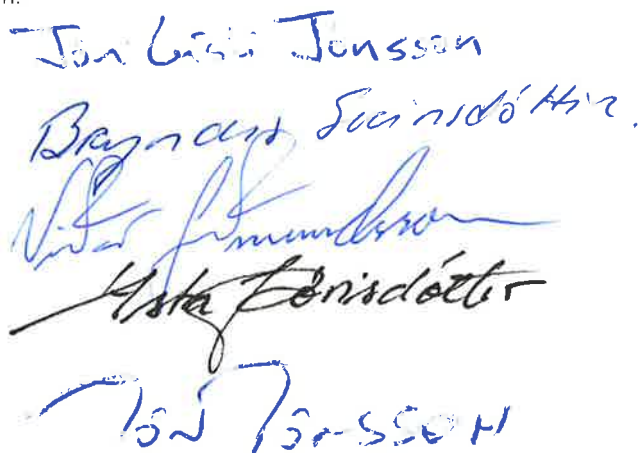 Jón Gísli Jónsson
Bryndís Sveinsdóttir.
Viðar Guðmundsson
Ásta Þórisdóttir
Jón Jónsson